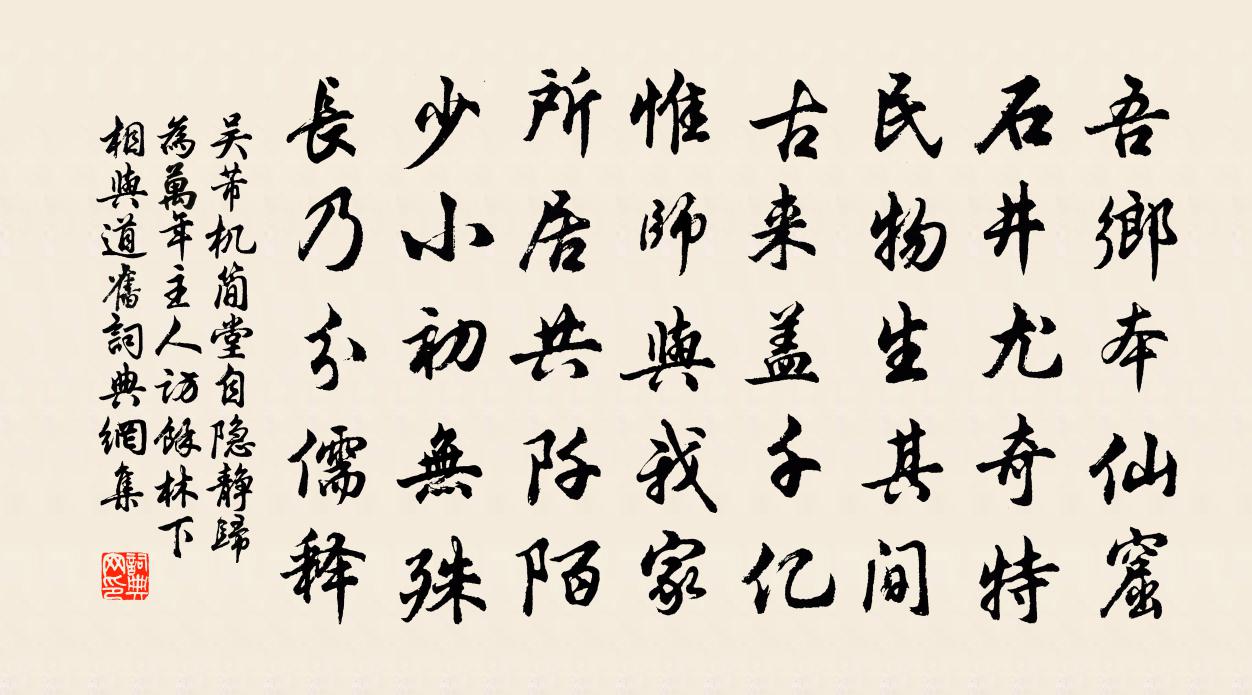 吾鄉本仙窟
石井尤奇特
民物生其间
古来盖千亿
惟師與我家
所居共阡陌
少小初無殊
長乃分儒释
吴芾机简堂自隐静歸
為萬年主人访餘林下
相與道舊詞典網集
詞典网印